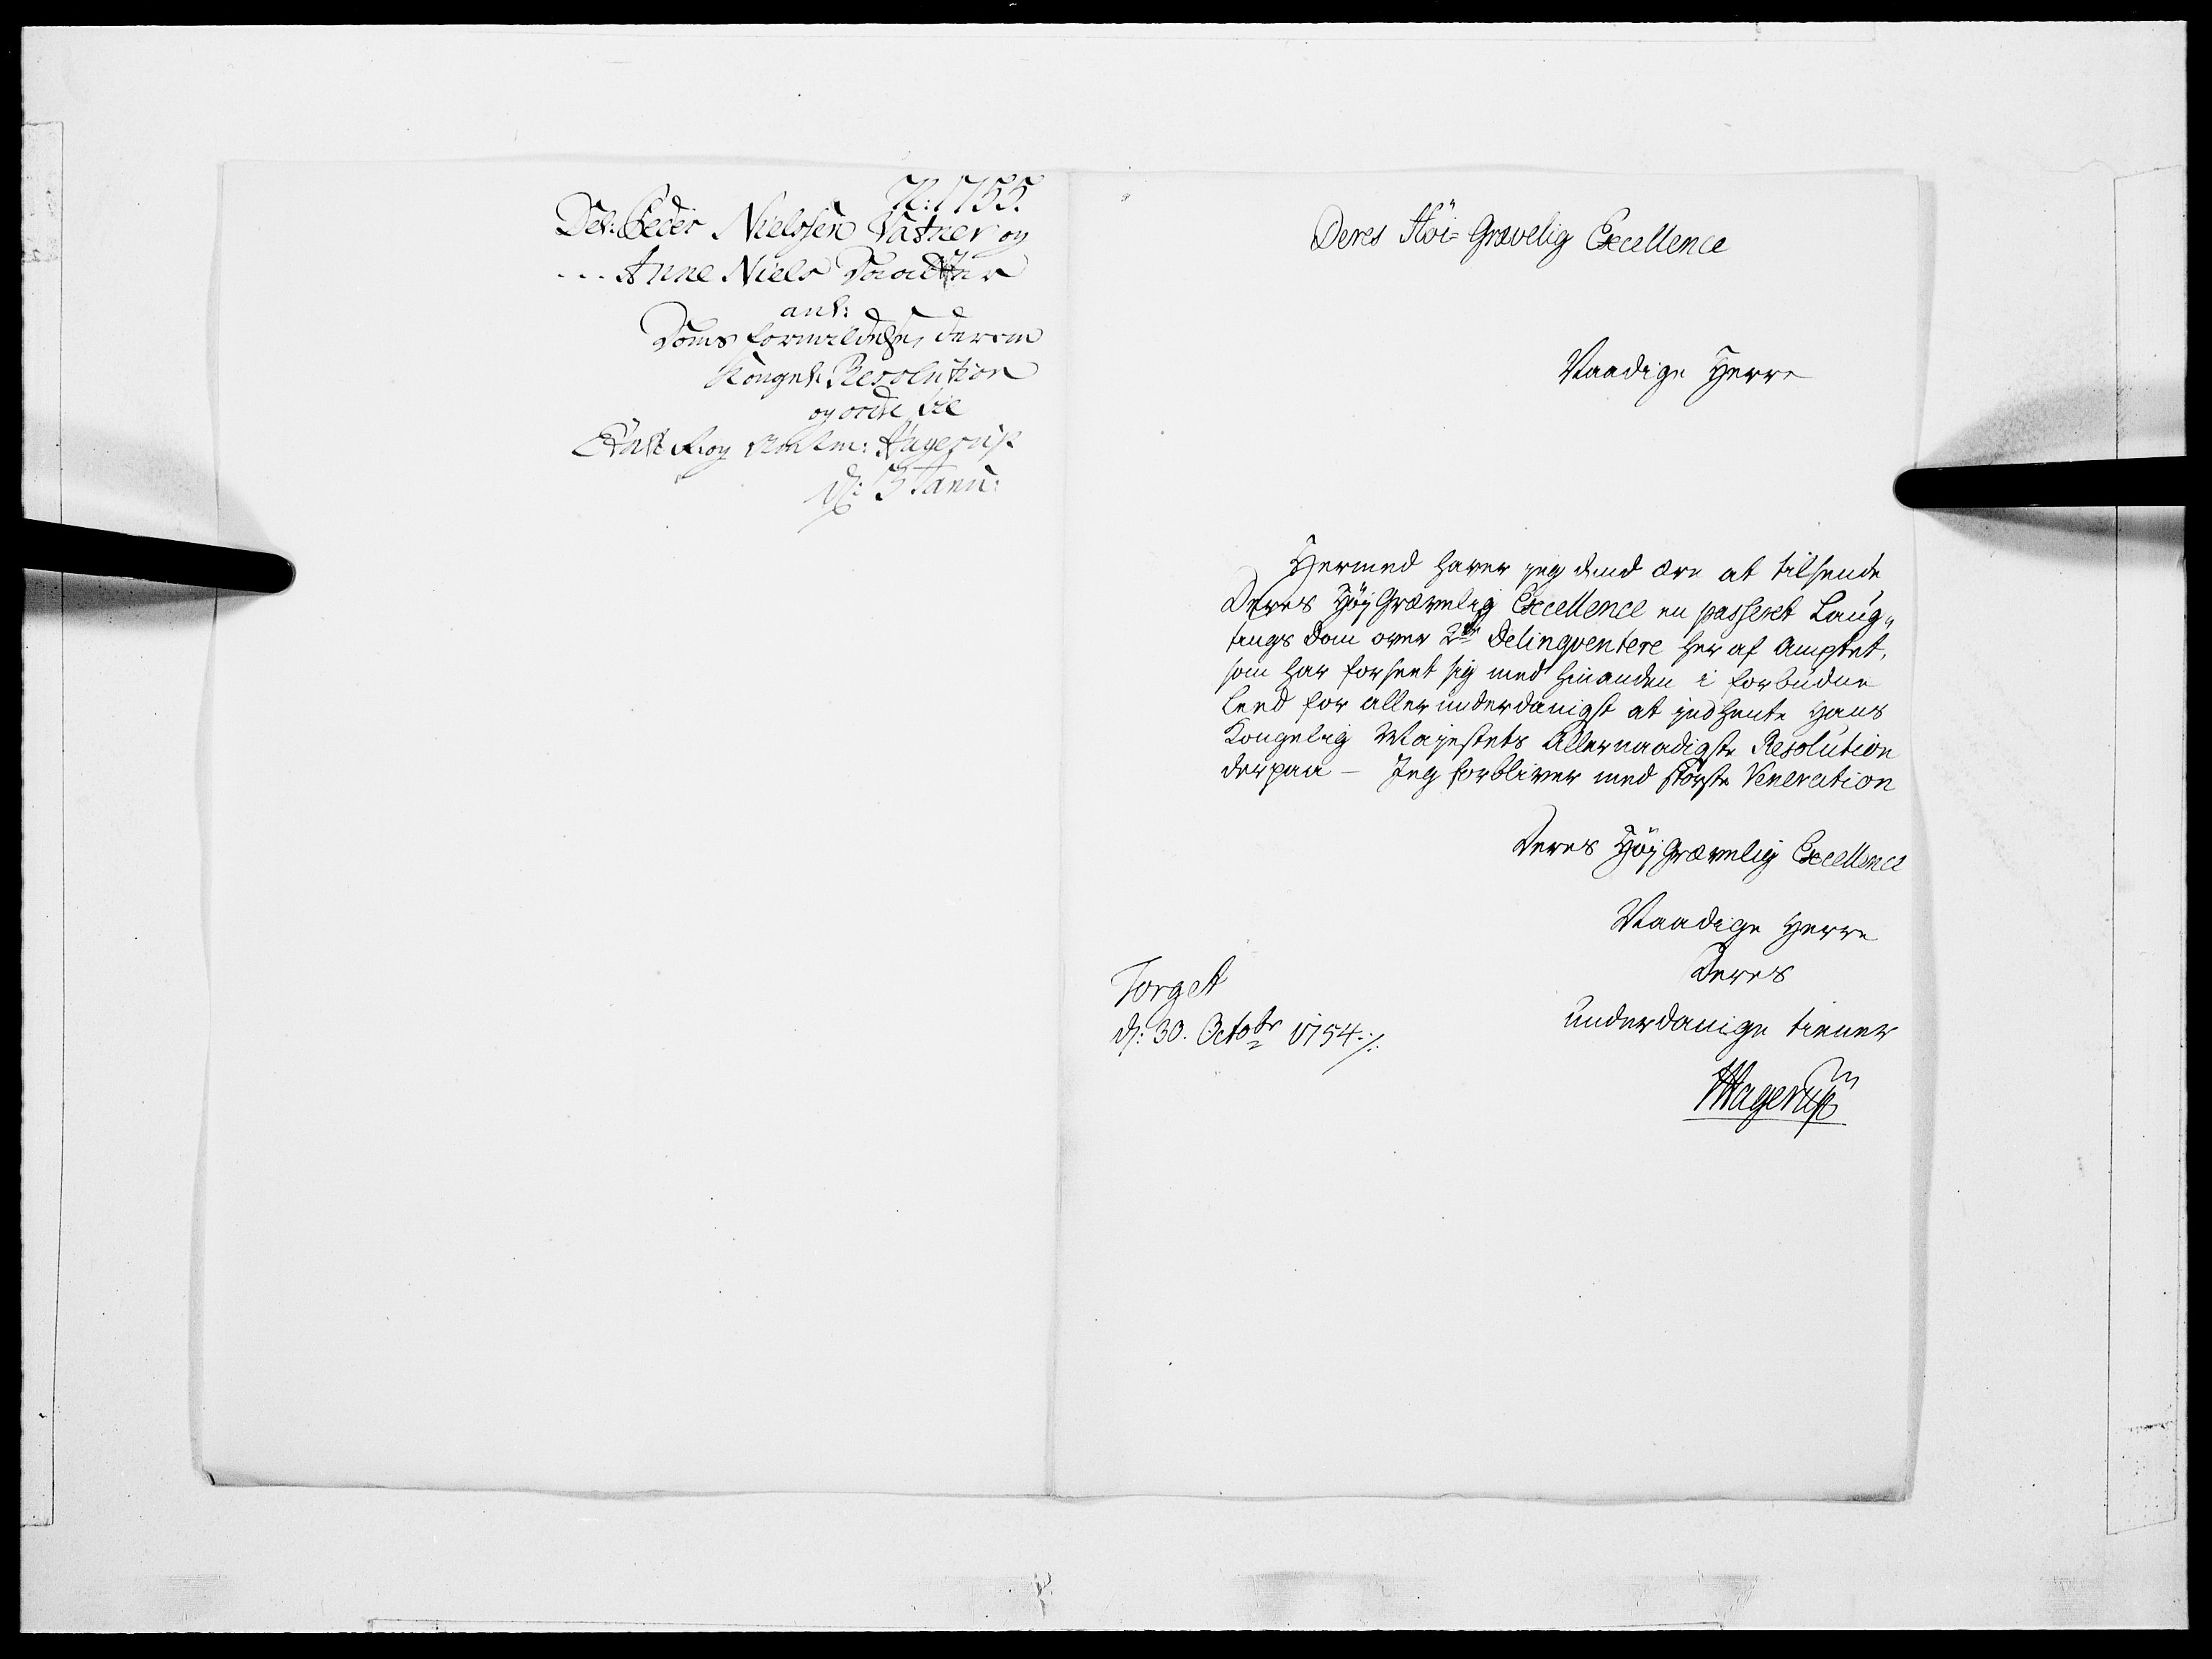 N: 1755.
Del: Peder Nielssen Vatner og
... Anne Niels Daatter
anl:
Doms formildelse, derom
Kongel: Resolution
og ordre til
Etats R: og Amtm: Hagerup
d: 3 Janu:
Deres Höi= Grævelig Excellence
Naadige Herre
Hermed haver jeg dend ære at tilsende
Deres Høy Grævelig Excellence en passeret Laug„
tings dom over 2de Delinqventere her af Amptet,
som har forseet sig med hinanden i forbudne
leed for allerunderdanigst at indhente Hans
Kongelig Mayestets Allernaadigste Resolution
derpaa — Jeg forbliver med største Veneration
Deres Høy Grævelig Excellence
Naadige Herre
Deres
underdanige tiener
Hagerup
Torget
d: 30. Octobr 1754 ./.